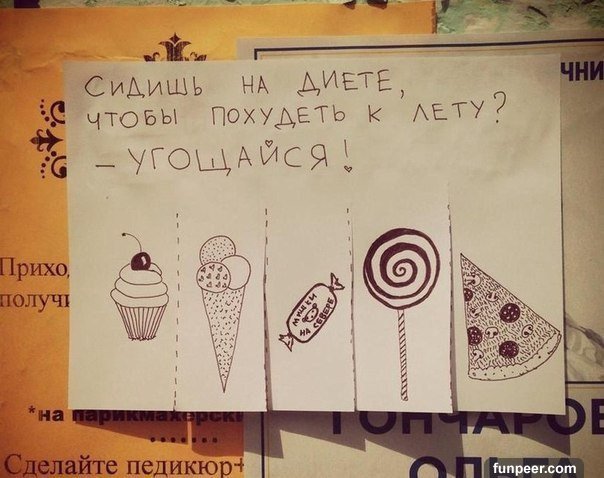 СИДИШЬ НА ДИЕТЕ,
ЧТОБЫ ПОХУДЕТЬ К ЛЕТУ?
– УГОЩАЙСЯ!
МИШКИ
НА СЕВЕРЕ
ЧНИ
Прихо
получи
*на парикмахерски
Сделайте педикюр+
ГОНЧАРОВ
ОЛЬГА
funpeer.com